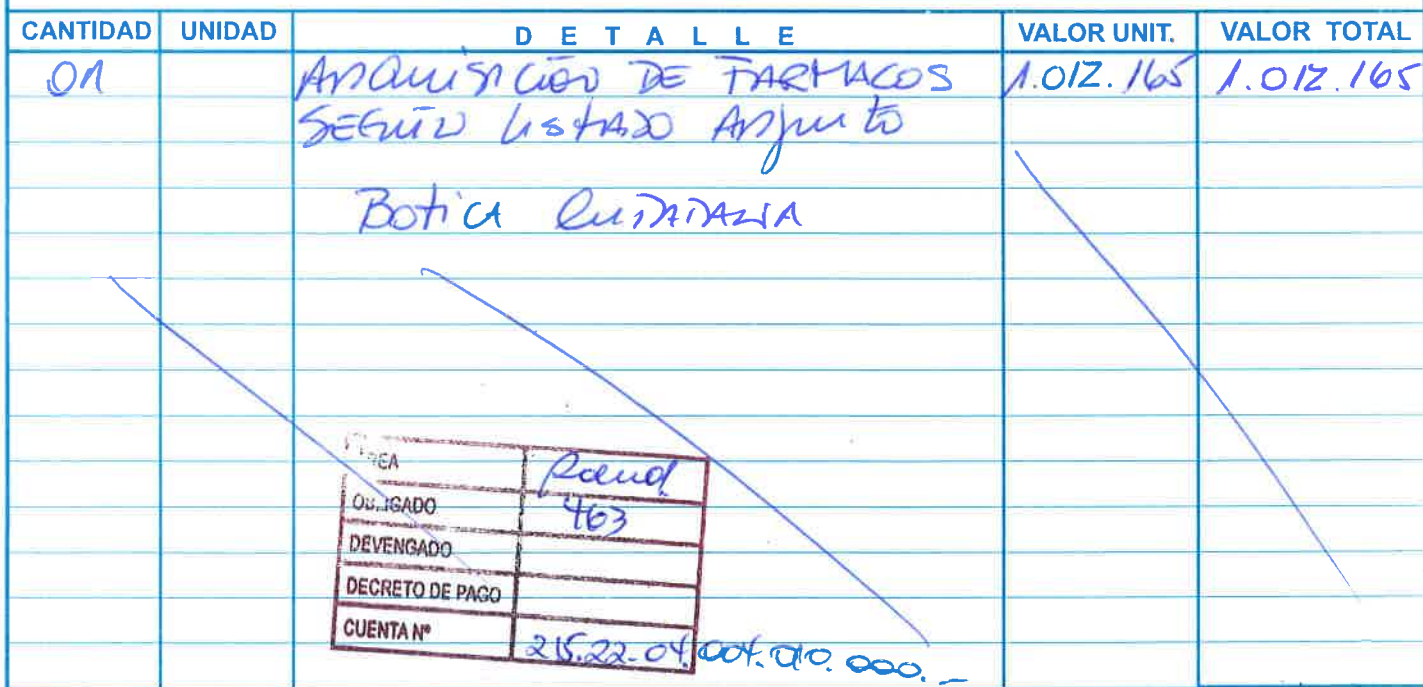 CANTIDAD UNIDAD DETALLE VALOR UNIT. VALOR TOTAL
01 ADQUISICIÓN DE FARMACOS 1.012.165 1.012.165
SEGÚN LISTADO ADJUNTO
BOTICA CIUDADANA
AREA Salud
OBLIGADO 463
DEVENGADO
DECRETO DE PAGO
CUENTA Nº 215.22.04.004.010.000.-